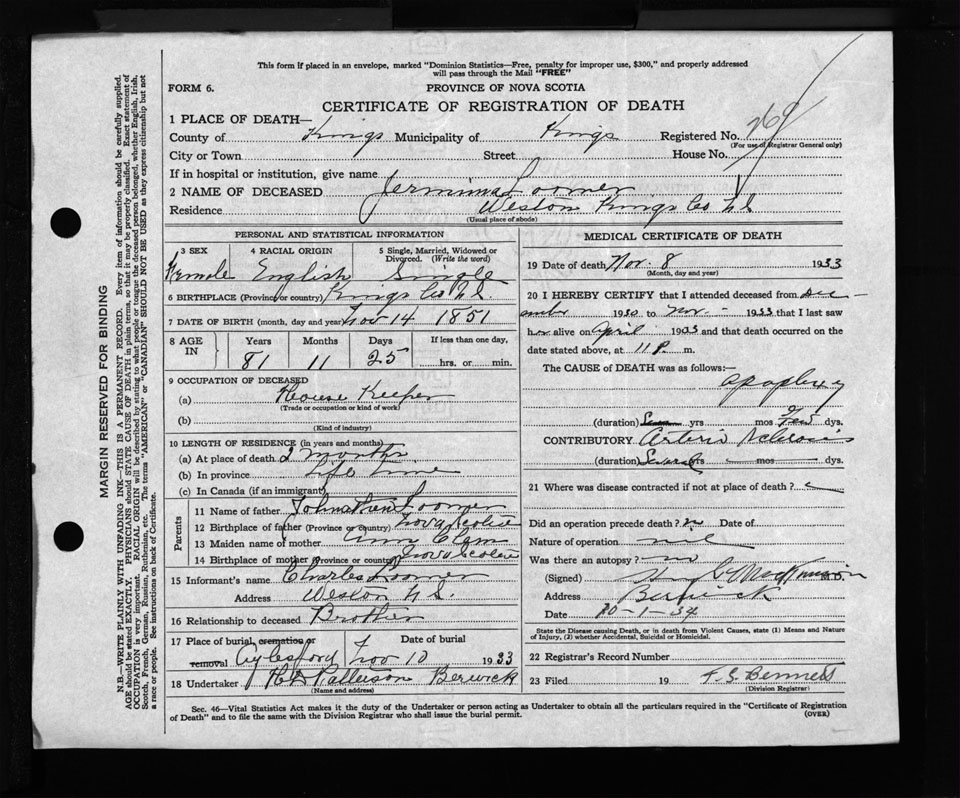 This form if placed in an envelope, marked "Dominion Statistics—Free, penalty for improper use, $300," and properly addressed
will pass through the Mail "FREE"
FORM 6.
PROVINCE OF NOVA SCOTIA
CERTIFICATE OF REGISTRATION OF DEATH
1 PLACE OF DEATH—
County of Kings Municipality of Kings Registered No.
(For use of Registrar General only)
City or Town Street House No.
If in hospital or institution, give name
2 NAME OF DECEASED Jermima Loomer
Residence Weston Kings Co N S
(Usual place of abode)
PERSONAL AND STATISTICAL INFORMATION
3 SEX 4 RACIAL ORIGIN 5 Single, Married, Widowed or Divorced. (Write the word)
Female English Single
6 BIRTHPLACE (Province or country) Kings Co N.S.
7 DATE OF BIRTH (month, day and year) Nov 14 1851
8 AGE IN Years Months Days If less than one day,
81 11 25 hrs. or min.
9 OCCUPATION OF DECEASED
(a) House Keeper
(Trade or occupation or kind of work)
(b)
(Kind of industry)
10 LENGTH OF RESIDENCE (in years and months)
(a) At place of death 2 months
(b) In province Life time
(c) In Canada (if an immigrant)
Parents
11 Name of father Loomer
12 Birthplace of father (Province or country) Nova Scotia
13 Maiden name of mother Ann
14 Birthplace of mother (Province or country) Nova Scotia
15 Informant's name Charles Loomer
Address Weston N.S.
16 Relationship to deceased Brother
17 Place of burial, cremation or removal Aylesford Date of burial Nov 10 1933
18 Undertaker Patterson Berwick
(Name and address)
MEDICAL CERTIFICATE OF DEATH
19 Date of death, Nov. 8 1933
(Month, day and year)
20 I HEREBY CERTIFY that I attended deceased from Dec-
ember 1930 to Nov - 1933 that I last saw
her alive on April 1933 and that death occurred on
date stated above, at 11 P. m.
The CAUSE of DEATH was as follows:—
apoplexy
(duration) yrs mos Few dys.
CONTRIBUTORY Arterio Sclerosis
(duration) Several yrs mos dys.
21 Where was disease contracted if not at place of death?
Did an operation precede death? no Date of
Nature of operation nil
Was there an autopsy? no
(Signed) M.D.
Address Berwick
Date 10-1-34
State the Disease causing Death, or in death from Violent Causes, state (1) Means and Nature
of Injury, (2) whether Accidental, Suicidal or Homicidal.
22 Registrar's Record Number
23 Filed 19 Bennett
(Division Registrar)
Sec. 46—Vital Statistics Act makes it the duty of the Undertaker or person acting as Undertaker to obtain all the particulars required in the "Certificate of Registration
of Death" and to file the same with the Division Registrar who shall issue the burial permit.
(OVER)
MARGIN RESERVED FOR BINDING
N.B.—WRITE PLAINLY WITH UNFADING INK—THIS IS A PERMANENT RECORD. Every item of information should be carefully supplied.
AGE should be stated EXACTLY. PHYSICIANS should STATE CAUSE OF DEATH in plain terms, so that it may be properly classified. Exact statement of
OCCUPATION is very important. RACIAL ORIGIN will be described by stating to what people or tongue the deceased person belonged, whether English, Irish,
Scotch, French, German, Russian, Ruthenian, etc. The terms "AMERICAN" or "CANADIAN" SHOULD NOT BE USED as they express citizenship but not
a race or people. See instructions on back of Certificate.